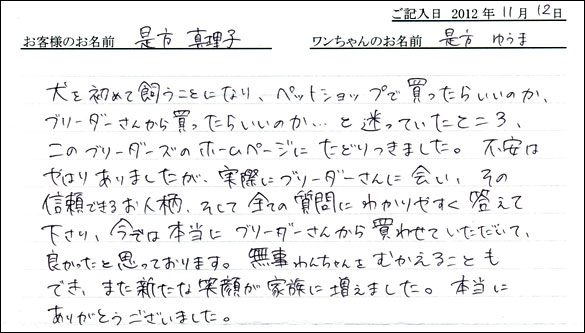 ご記入日 2012年 11月 12日
お客様のお名前 是方 真理子 ワンちゃんのお名前 是方 ゆうま
犬を初めて飼うことになり、ペットショップで買ったらいいのか、
ブリーダーさんから買ったらいいのか…と迷っていたところ、
このブリーダーズのホームページにたどりつきました。不安は
やはりありましたが、実際にブリーダーさんに会い、その
信頼できるお人柄、そして全ての質問にわかりやすく答えて
下さり、今では本当にブリーダーさんから買わせていただいて、
良かったと思っております。無事わんちゃんをむかえることも
でき、また新たな笑顔が家族に増えました。本当に
ありがとうございました。